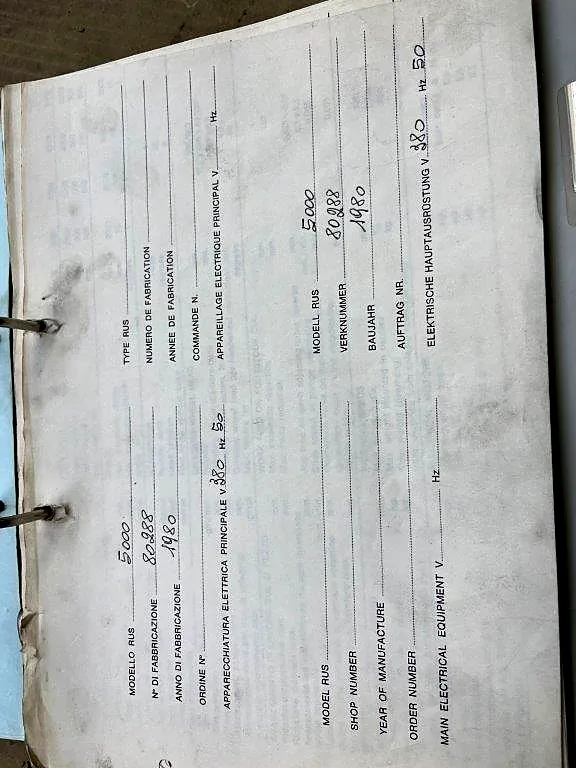 MODELLO RUS 5000
N° DI FABBRICAZIONE 80288
ANNO DI FABBRICAZIONE 1980
ORDINE N°
APPARECCHIATURA ELETTRICA PRINCIPALE V. 380 Hz 50
TYPE RUS
NUMERO DE FABRICATION
ANNEE DE FABRICATION
COMMANDE N.
APPAREILLAGE ELECTRIQUE PRINCIPAL V. Hz
MODEL RUS
SHOP NUMBER
YEAR OF MANUFACTURE
ORDER NUMBER
MAIN ELECTRICAL EQUIPMENT V. Hz
MODELL RUS 5000
VERKNUMMER 80288
BAUJAHR 1980
AUFTRAG NR.
ELEKTRISCHE HAUPTAUSRÜSTUNG V. 380 Hz 50